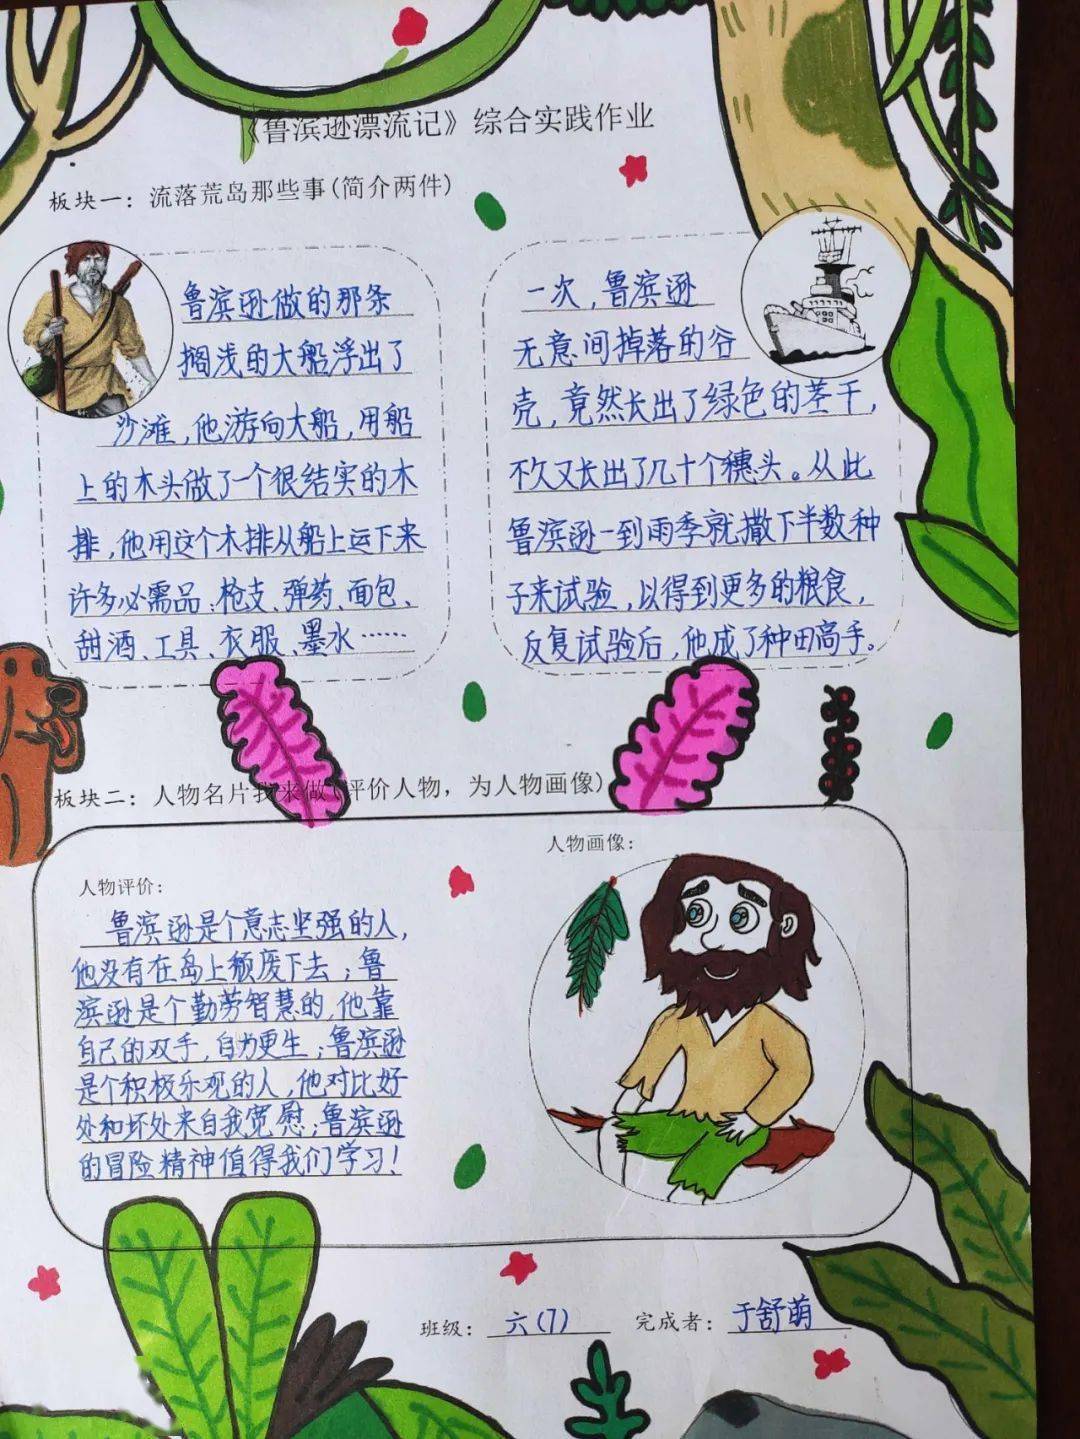 《鲁滨逊漂流记》综合实践作业
板块一：流落荒岛那些事(简介两件)
鲁滨逊做的那条
搁浅的大船浮出了
沙滩，他游向大船，用船
上的木头做了一个很结实的木
排，他用这个木排从船上运下来
许多必需品：枪支、弹药、面包、
甜酒、工具、衣服、墨水……
一次，鲁滨逊
无意间掉落的谷
壳，竟然长出了绿色的茎干，
不久又长出了几十个穗头。从此
鲁滨逊一到雨季就撒下半数种
子来试验，以得到更多的粮食，
反复试验后，他成了种田高手。
板块二：人物名片我来做(评价人物，为人物画像)
人物评价：
鲁滨逊是个意志坚强的人，
他没有在岛上颓废下去；鲁
滨逊是个勤劳智慧的，他靠
自己的双手，自力更生；鲁滨逊
是个积极乐观的人，他对比好
处和坏处来自我宽慰；鲁滨逊
的冒险精神值得我们学习！
人物画像：
班级：六(7) 完成者：于舒萌